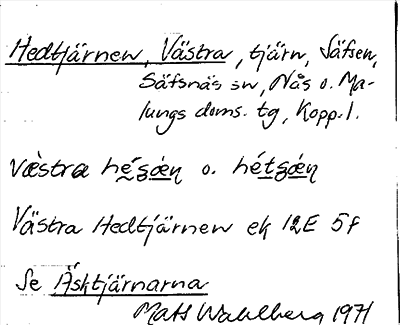 Hedtjärnen, Västra, tjärn, Säfsen,
Säfsnäs sn, Nås o. Ma-
lungs doms. tg, Kopp. l.
væ̀stra o.
Västra Hedtjärnen ek 12E 5f
Se Äsktjärnarna
Mats Wahlberg 1971